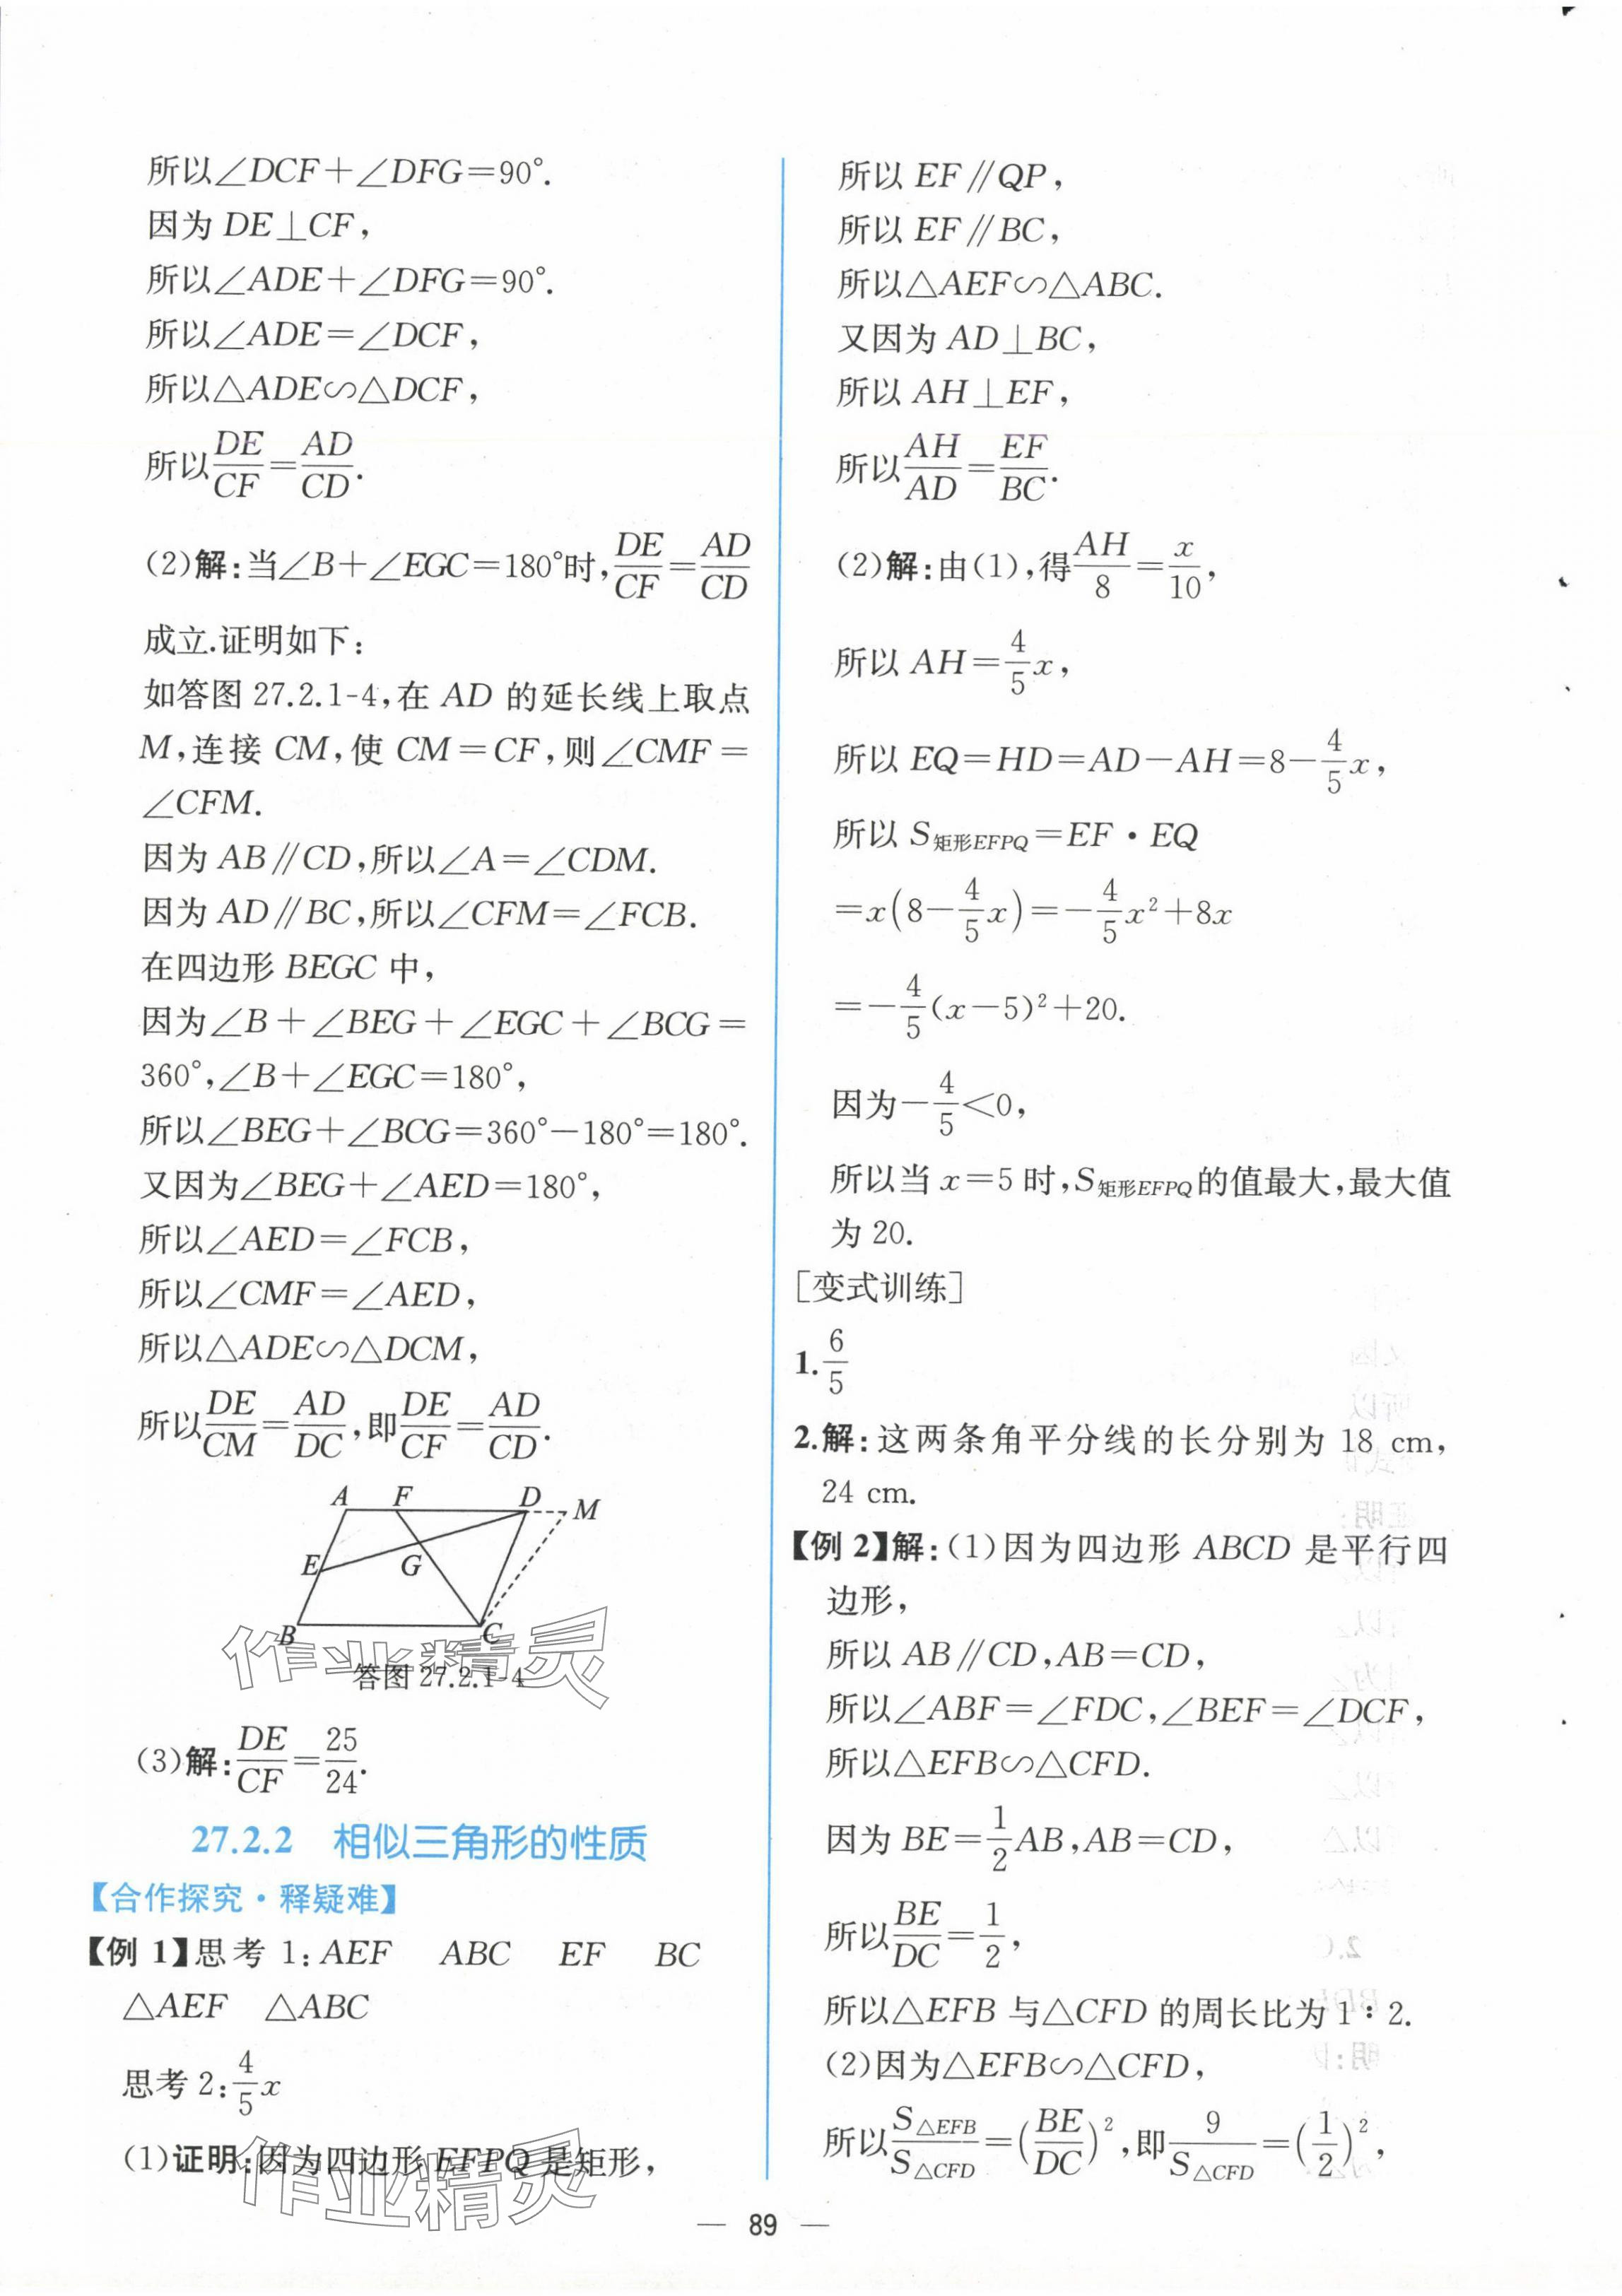 所以∠DCF+∠DFG=90°.
因为 DE⊥CF,
所以∠ADE+∠DFG=90°.
所以∠ADE=∠DCF,
所以△ADE∽△DCF,
所以DE/CF=AD/CD.
(2)解:当∠B+∠EGC=180°时,DE/CF=AD/CD
成立.证明如下:
如答图 27.2.1-4,在 AD 的延长线上取点
M,连接 CM,使 CM=CF,则∠CMF=
∠CFM.
因为 AB∥CD,所以∠A=∠CDM.
因为 AD∥BC,所以∠CFM=∠FCB.
在四边形 BEGC 中,
因为∠B+∠BEG+∠EGC+∠BCG=
360°,∠B+∠EGC=180°,
所以∠BEG+∠BCG=360°-180°=180°.
又因为∠BEG+∠AED=180°,
所以∠AED=∠FCB,
所以∠CMF=∠AED,
所以△ADE∽△DCM,
所以DE/CM=AD/DC,即DE/CF=AD/CD.
A F D M
E G
B C
答图 27.2.1-4
作业精灵
(3)解:DE/CF=25/24.
27.2.2 相似三角形的性质
【合作探究·释疑难】
【例 1】思考 1:AEF ABC EF BC
△AEF △ABC
思考 2:4/5x
(1)证明:因为四边形 EFPQ 是矩形,
作业精灵
所以 EF∥QP,
所以 EF∥BC,
所以△AEF∽△ABC.
又因为 AD⊥BC,
所以 AH⊥EF,
所以AH/AD=EF/BC.
(2)解:由(1),得AH/8=x/10,
所以 AH=4/5x,
所以 EQ=HD=AD-AH=8-4/5x,
所以 S矩形EFPQ=EF·EQ
=x(8-4/5x)=-4/5x²+8x
=-4/5(x-5)²+20.
因为-4/5<0,
所以当 x=5 时,S矩形EFPQ的值最大,最大值
为 20.
[变式训练]
1.6/5
2.解:这两条角平分线的长分别为 18 cm,
24 cm.
【例 2】解:(1)因为四边形 ABCD 是平行四
边形,
所以 AB∥CD,AB=CD,
所以∠ABF=∠FDC,∠BEF=∠DCF,
所以△EFB∽△CFD.
因为 BE=1/2AB,AB=CD,
所以BE/DC=1/2,
所以△EFB 与△CFD 的周长比为 1∶2.
(2)因为△EFB∽△CFD,
所以S△EFB/S△CFD=(BE/DC)²,即9/S△CFD=(1/2)²,
— 89 —